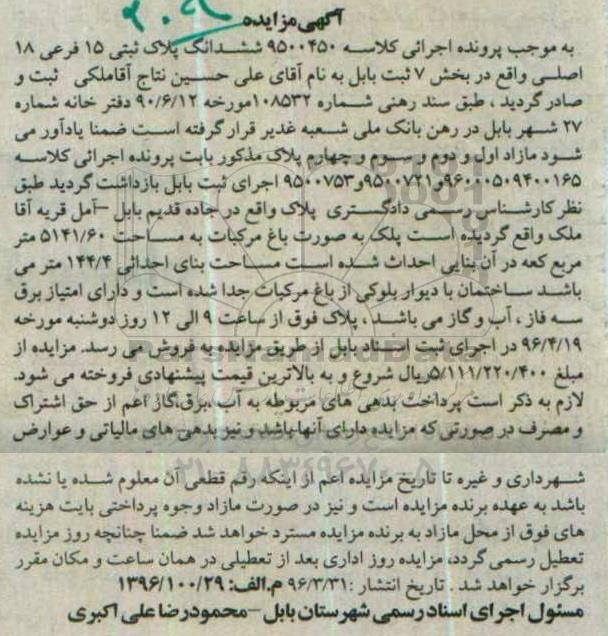 ۲۰۹
آگهی مزایده
به موجب پرونده اجرائی کلاسه ۹۵۰۰۴۵۰ ششدانگ پلاک ثبتی ۱۵ فرعی ۱۸
اصلی واقع در بخش ۷ ثبت بابل به نام آقای علی حسین نتاج آقاملکی ثبت و
صادر گردید ، طبق سند رهنی شماره ۱۰۸۵۳۲مورخه ۹۰/۶/۱۲ دفتر خانه شماره
۲۷ شهر بابل در رهن بانک ملی شعبه غدیر قرار گرفته است ضمنا یادآور می
شود مازاد اول و دوم و سوم و چهارم پلاک مذکور بابت پرونده اجرائی کلاسه
۹۵۰۰۷۲۱و۹۵۰۰۷۵۳ اجرای ثبت بابل بازداشت گردید طبق
نظر کارشناس رسمی دادگستری پلاک واقع در جاده قدیم بابل –آمل قریه آقا
ملک واقع گردیده است پلک به صورت باغ مرکبات به مساحت ۵۱۴۱/۶۰ متر
مربع کعه در آن بنایی احداث شده است مساحت بنای احداثی ۱۴۴/۴ متر می
باشد ساختمان با دیوار بلوکی از باغ مرکبات جدا شده است و دارای امتیاز برق
سه فاز ، آب و گاز می باشد ، پلاک فوق از ساعت ۹ الی ۱۲ روز دوشنبه مورخه
۹۶/۴/۱۹ در اجرای ثبت اسناد بابل از طریق مزایده به فروش می رسد. مزایده از
مبلغ ۵/۱۱۱/۲۲۰/۴۰۰ریال شروع و به بالاترین قیمت پیشنهادی فروخته می شود.
لازم به ذکر است پرداخت بدهی های مربوطه به آب ،برق،گاز اعم از حق اشتراک
و مصرف در صورتی که مزایده دارای آنها باشد و نیز بدهی های مالیاتی و عوارض
شهرداری و غیره تا تاریخ مزایده اعم از اینکه رقم قطعی آن معلوم شده یا نشده
باشد به عهده برنده مزایده است و نیز در صورت مازاد وجوه پرداختی بابت هزینه
های فوق از محل مازاد به برنده مزایده مسترد خواهد شد ضمنا چنانچه روز مزایده
تعطیل رسمی گردد، مزایده روز اداری بعد از تعطیلی در همان ساعت و مکان مقرر
برگزار خواهد شد . تاریخ انتشار :۹۶/۳/۳۱ م.الف: ۱۳۹۶/۱۰۰/۲۹
مسئول اجرای اسناد رسمی شهرستان بابل –محمودرضا علی اکبری
ParsNamadData